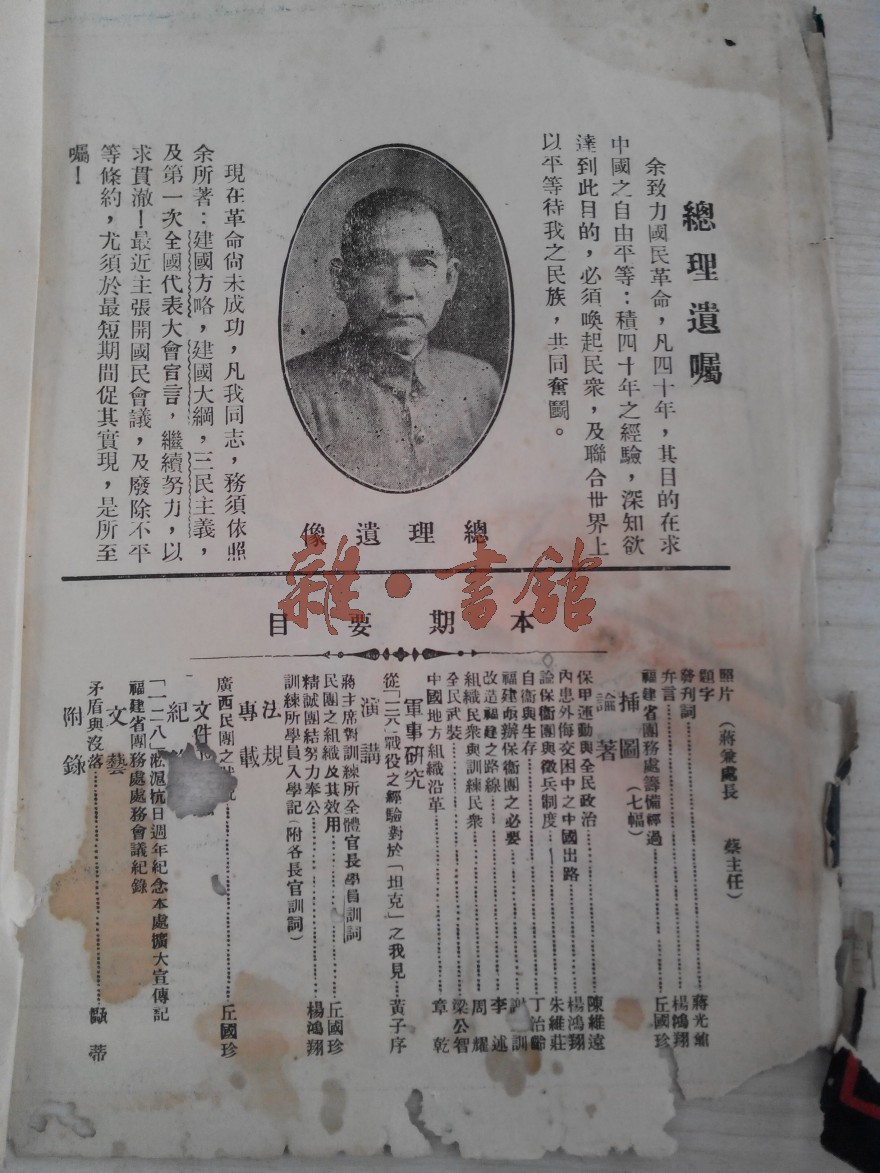 總理遺囑
余致力國民革命，凡四十年，其目的在求
中國之自由平等：積四十年之經驗，深知欲
達到此目的，必須喚起民衆，及聯合世界上
以平等待我之民族，共同奮鬭。
現在革命尙未成功，凡我同志，務須依照
余所著：建國方略，建國大綱，三民主義，
及第一次全國代表大會宣言，繼續努力，以
求貫澈！最近主張開國民會議，及廢除不平
等條約，尤須於最短期間促其實現，是所至
囑！
總理遺像
雜·書館
本期要目
照片（蔣兼處長　蔡主任）
題字
發刊詞 蔣光鼐
弁言 楊鴻翔
福建省團務處籌備經過 丘國珍
插圖（七幅）
論著
保甲運動與全民政治 陳維遠
內患外侮交困中之中國出路 楊鴻翔
論保衛團與徵兵制度 朱維莊
自衛與生存 丁治齡
福建亟辦保衛團之必要 訓
改造福建之路線 李述
組織民衆與訓練民衆 周耀
全民武裝 梁公智
中國地方組織沿革 章乾
軍事研究
從「一二八」戰役之經驗對於「坦克」之我見 黃子序
演講
蔣主席對訓練所全體官長學員訓詞
民團之組織及其效用 丘國珍
精誠團結努力奉公 楊鴻翔
訓練所學員入學記（附各長官訓詞）
法規
專載
廣西民團之 丘國珍
文件
紀
「一二八」淞滬抗日週年紀念本處擴大宣傳記
福建省團務處處務會議紀錄
文藝
矛盾與沒落 蒂
附錄